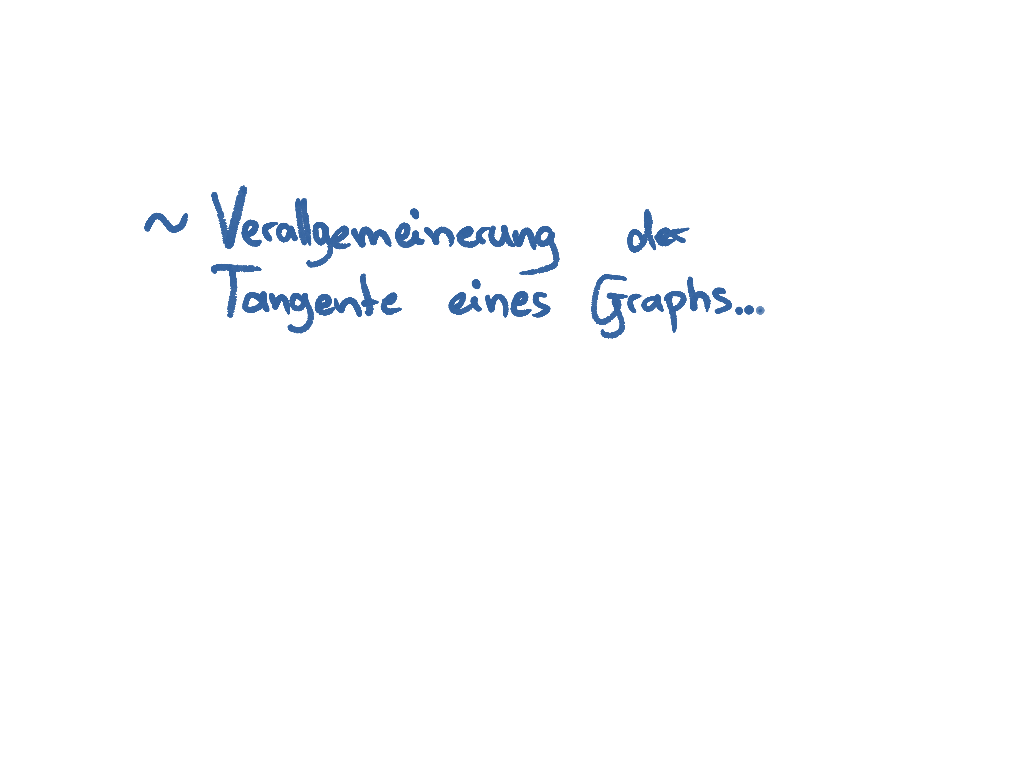 ~ Verallgemeinerung der
Tangente eines Graphs...